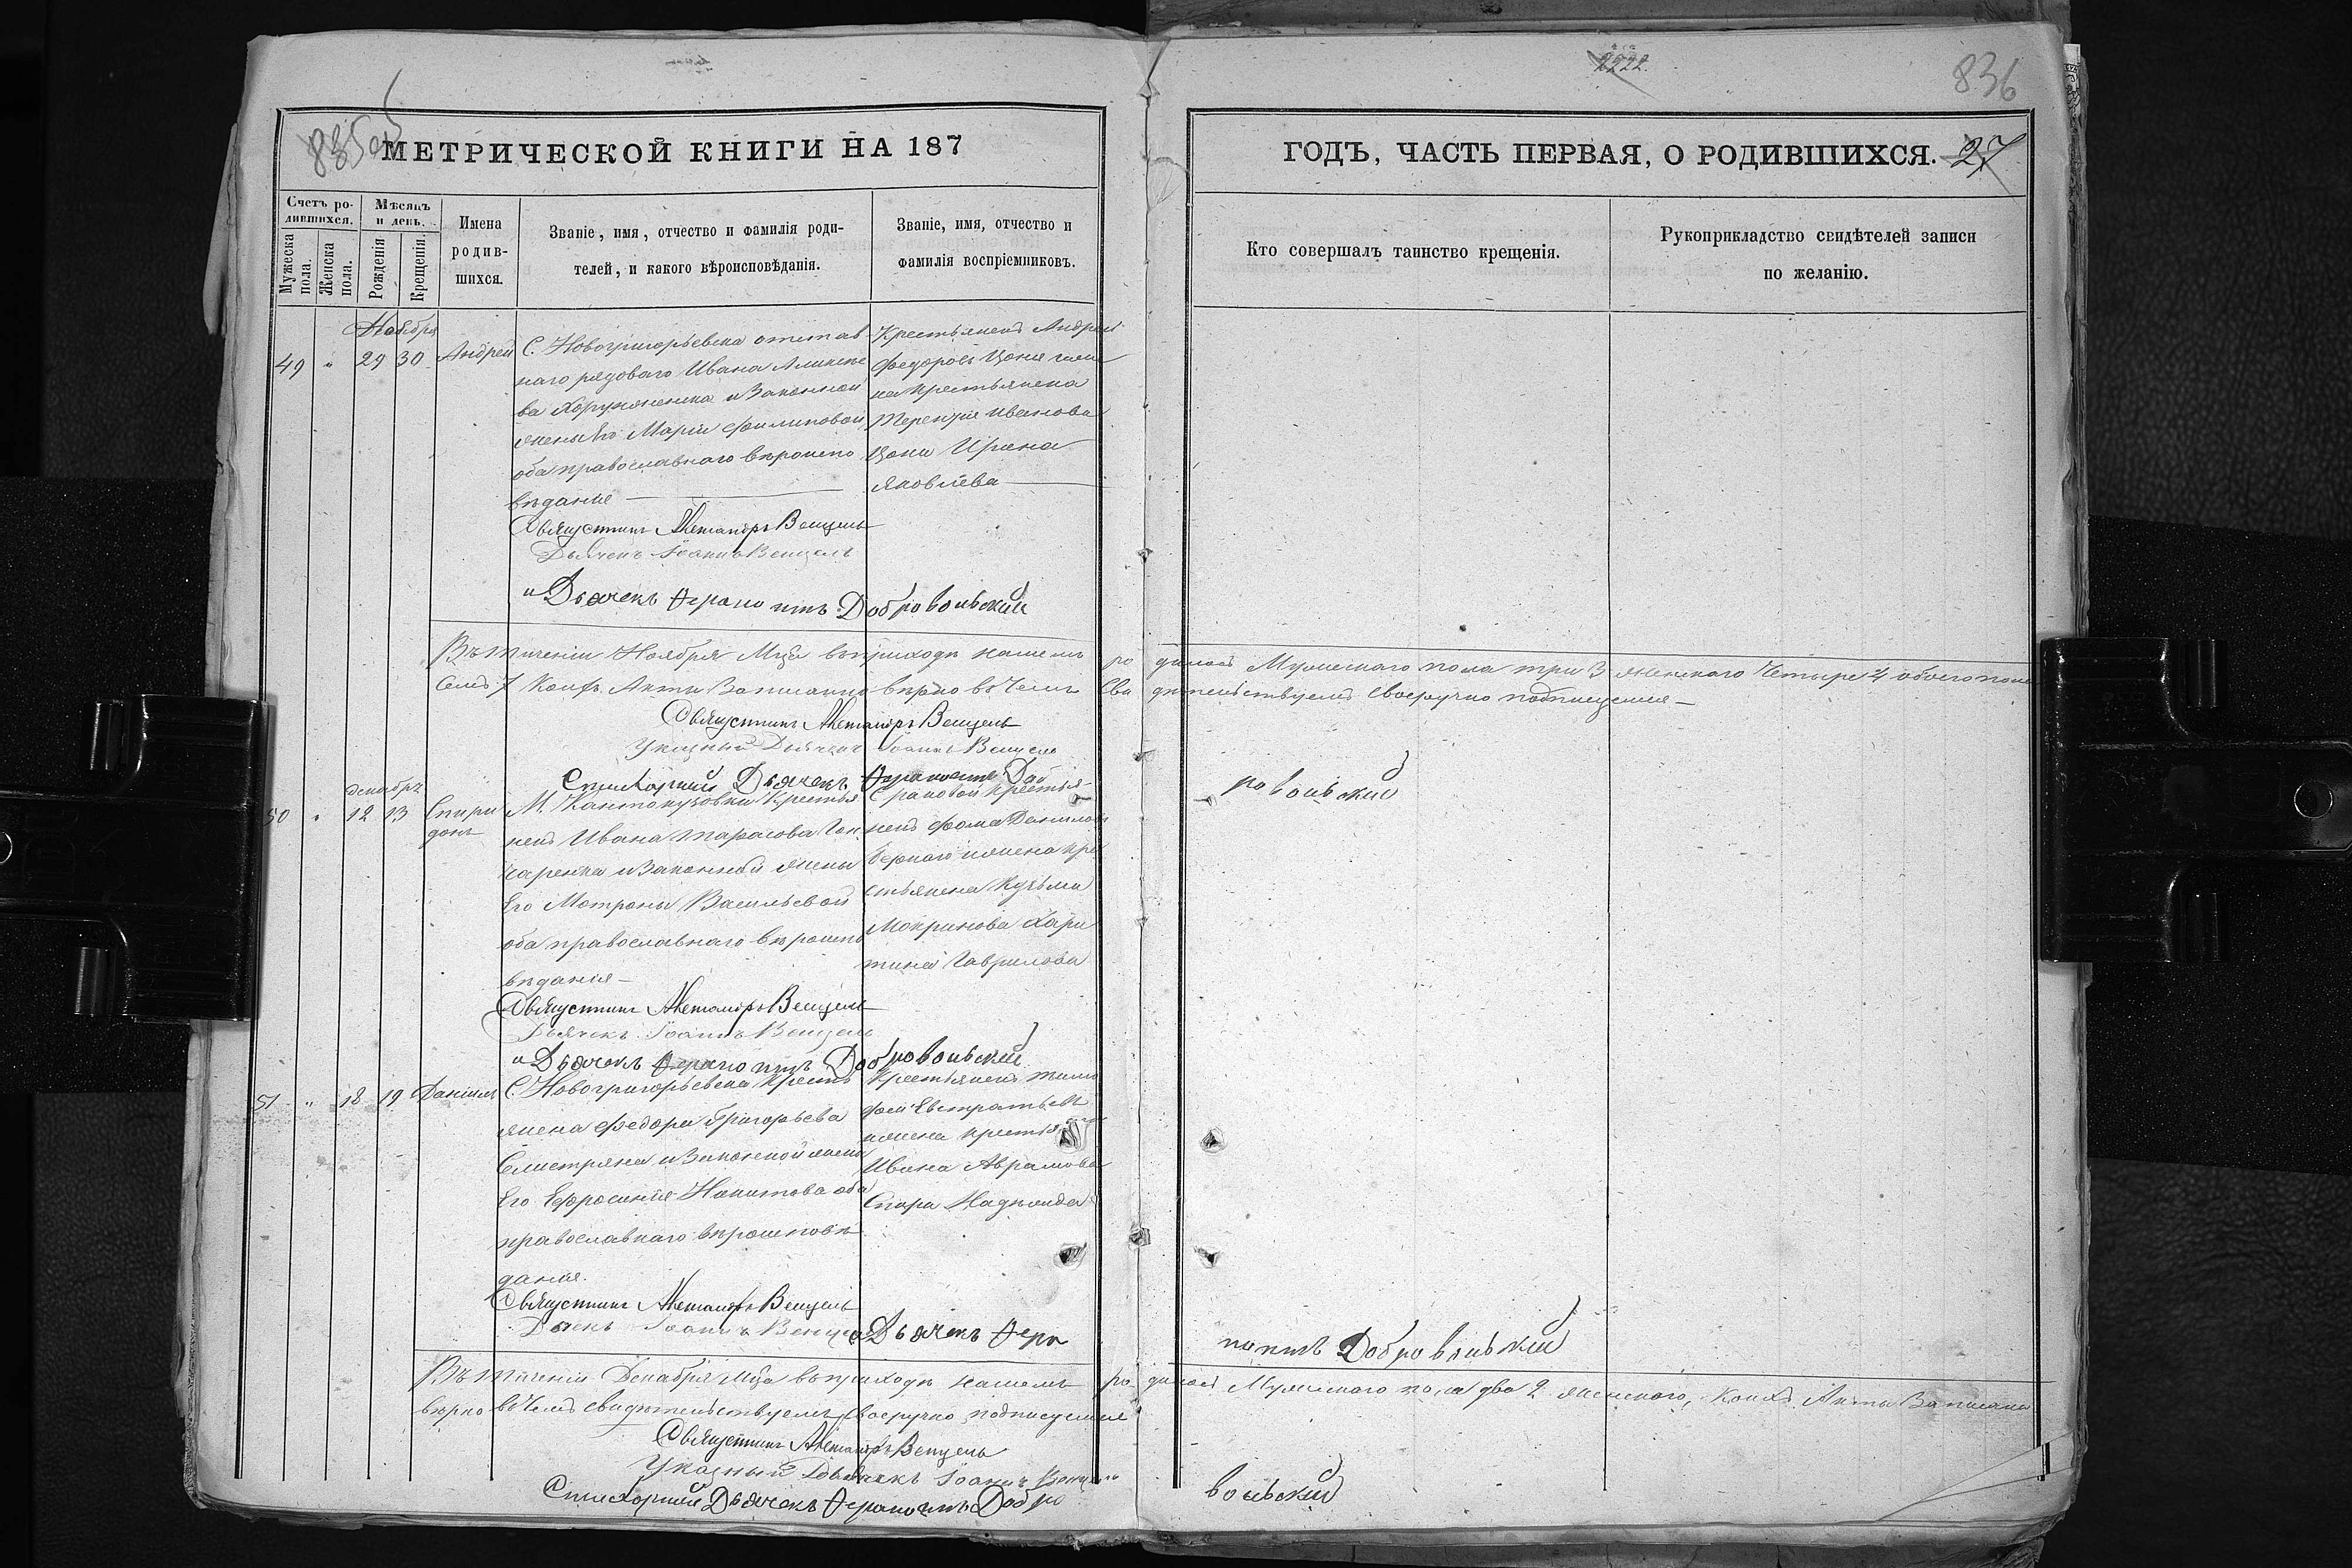 2222.
836
835об
МЕТРИЧЕСКОЙ КНИГИ НА 187
ГОДЪ, ЧАСТЬ ПЕРВАЯ, О РОДИВШИХСЯ. 27
Счетъ родившихся.
Мужеска пола.
Женска пола.
Мѣсяцъ и день.
Рожденія
Крещенія.
Имена родившихся.
Званіе, имя, отчество и фамилія родителей, и какого вѣроисповѣданія.
Званіе, имя, отчество и фамилія воспріемниковъ.
Кто совершалъ таинство крещенія.
Рукоприкладство свидѣтелей записи по желанію.
Ноября
49 " 29 30 Андрей
С. Новогригорьевка отстав
наго рядоваго Ивана
ва и Законной
жены Его Маріи Филиповой
оба православнаго вѣроиспо
вѣданія
Крестьянинъ Андрей
Федоровъ
на Крестьянина
Терентія Иванова
Ирина
Яковлева
Священникъ Венцель
Дьячекъ Іоаннъ Венцель
и Дьячекъ Добровольский
Въ теченіи Ноября Мца въ приходѣ нашемъ ро дилось Мужескаго пола три 3 женскаго Четыре 4 обоего пола
Семь 7 Коихъ Акты Записаны вѣрно въ Чемъ Сви дѣтельствуемъ своеручно подписуемся
Священникъ Венцель
Указный Дьячекъ Іоаннъ Венцель
Дьячекъ Доб ровольский
декабря
50 " 12 13 Спиридонъ
М. Кантокузовки Крестья
нинъ Ивана Тарасова Гон
чаренка и Законной жены
Его Мотроны Васильевой
оба православнаго вѣроиспо
вѣданія
С. Крестья
нинъ Фома Данилов
кре
стьянина Кузьмы
Хари
тина Гаврилова
Священникъ Венцель
Дьячекъ Іоаннъ Венцель
и Дьячекъ Добровольский
51 " 18 19 Даніилъ
С. Новогригорьевка Кресть
янина Федора Григорьева
и Законной жены
Его Ефросинія Никитова оба
православнаго вѣроисповѣ
данія.
Крестьянинъ Тимо
фей Евстратьевъ
Ивана Аврамова
Надежда
Священникъ Венцель
Дьячекъ Іоаннъ Венцель
Дьячекъ Добровольский
Въ теченіи Декабря Мца въ приходѣ нашемъ ро дилось Мужескаго пола два 2 женскаго, Коихъ Акты Записаны
вѣрно въ Чемъ свидѣтельствуемъ своеручно подписуемся
Священникъ Венцель
Указный Дьячекъ Іоаннъ Венцель
Дьячекъ Добро вольский